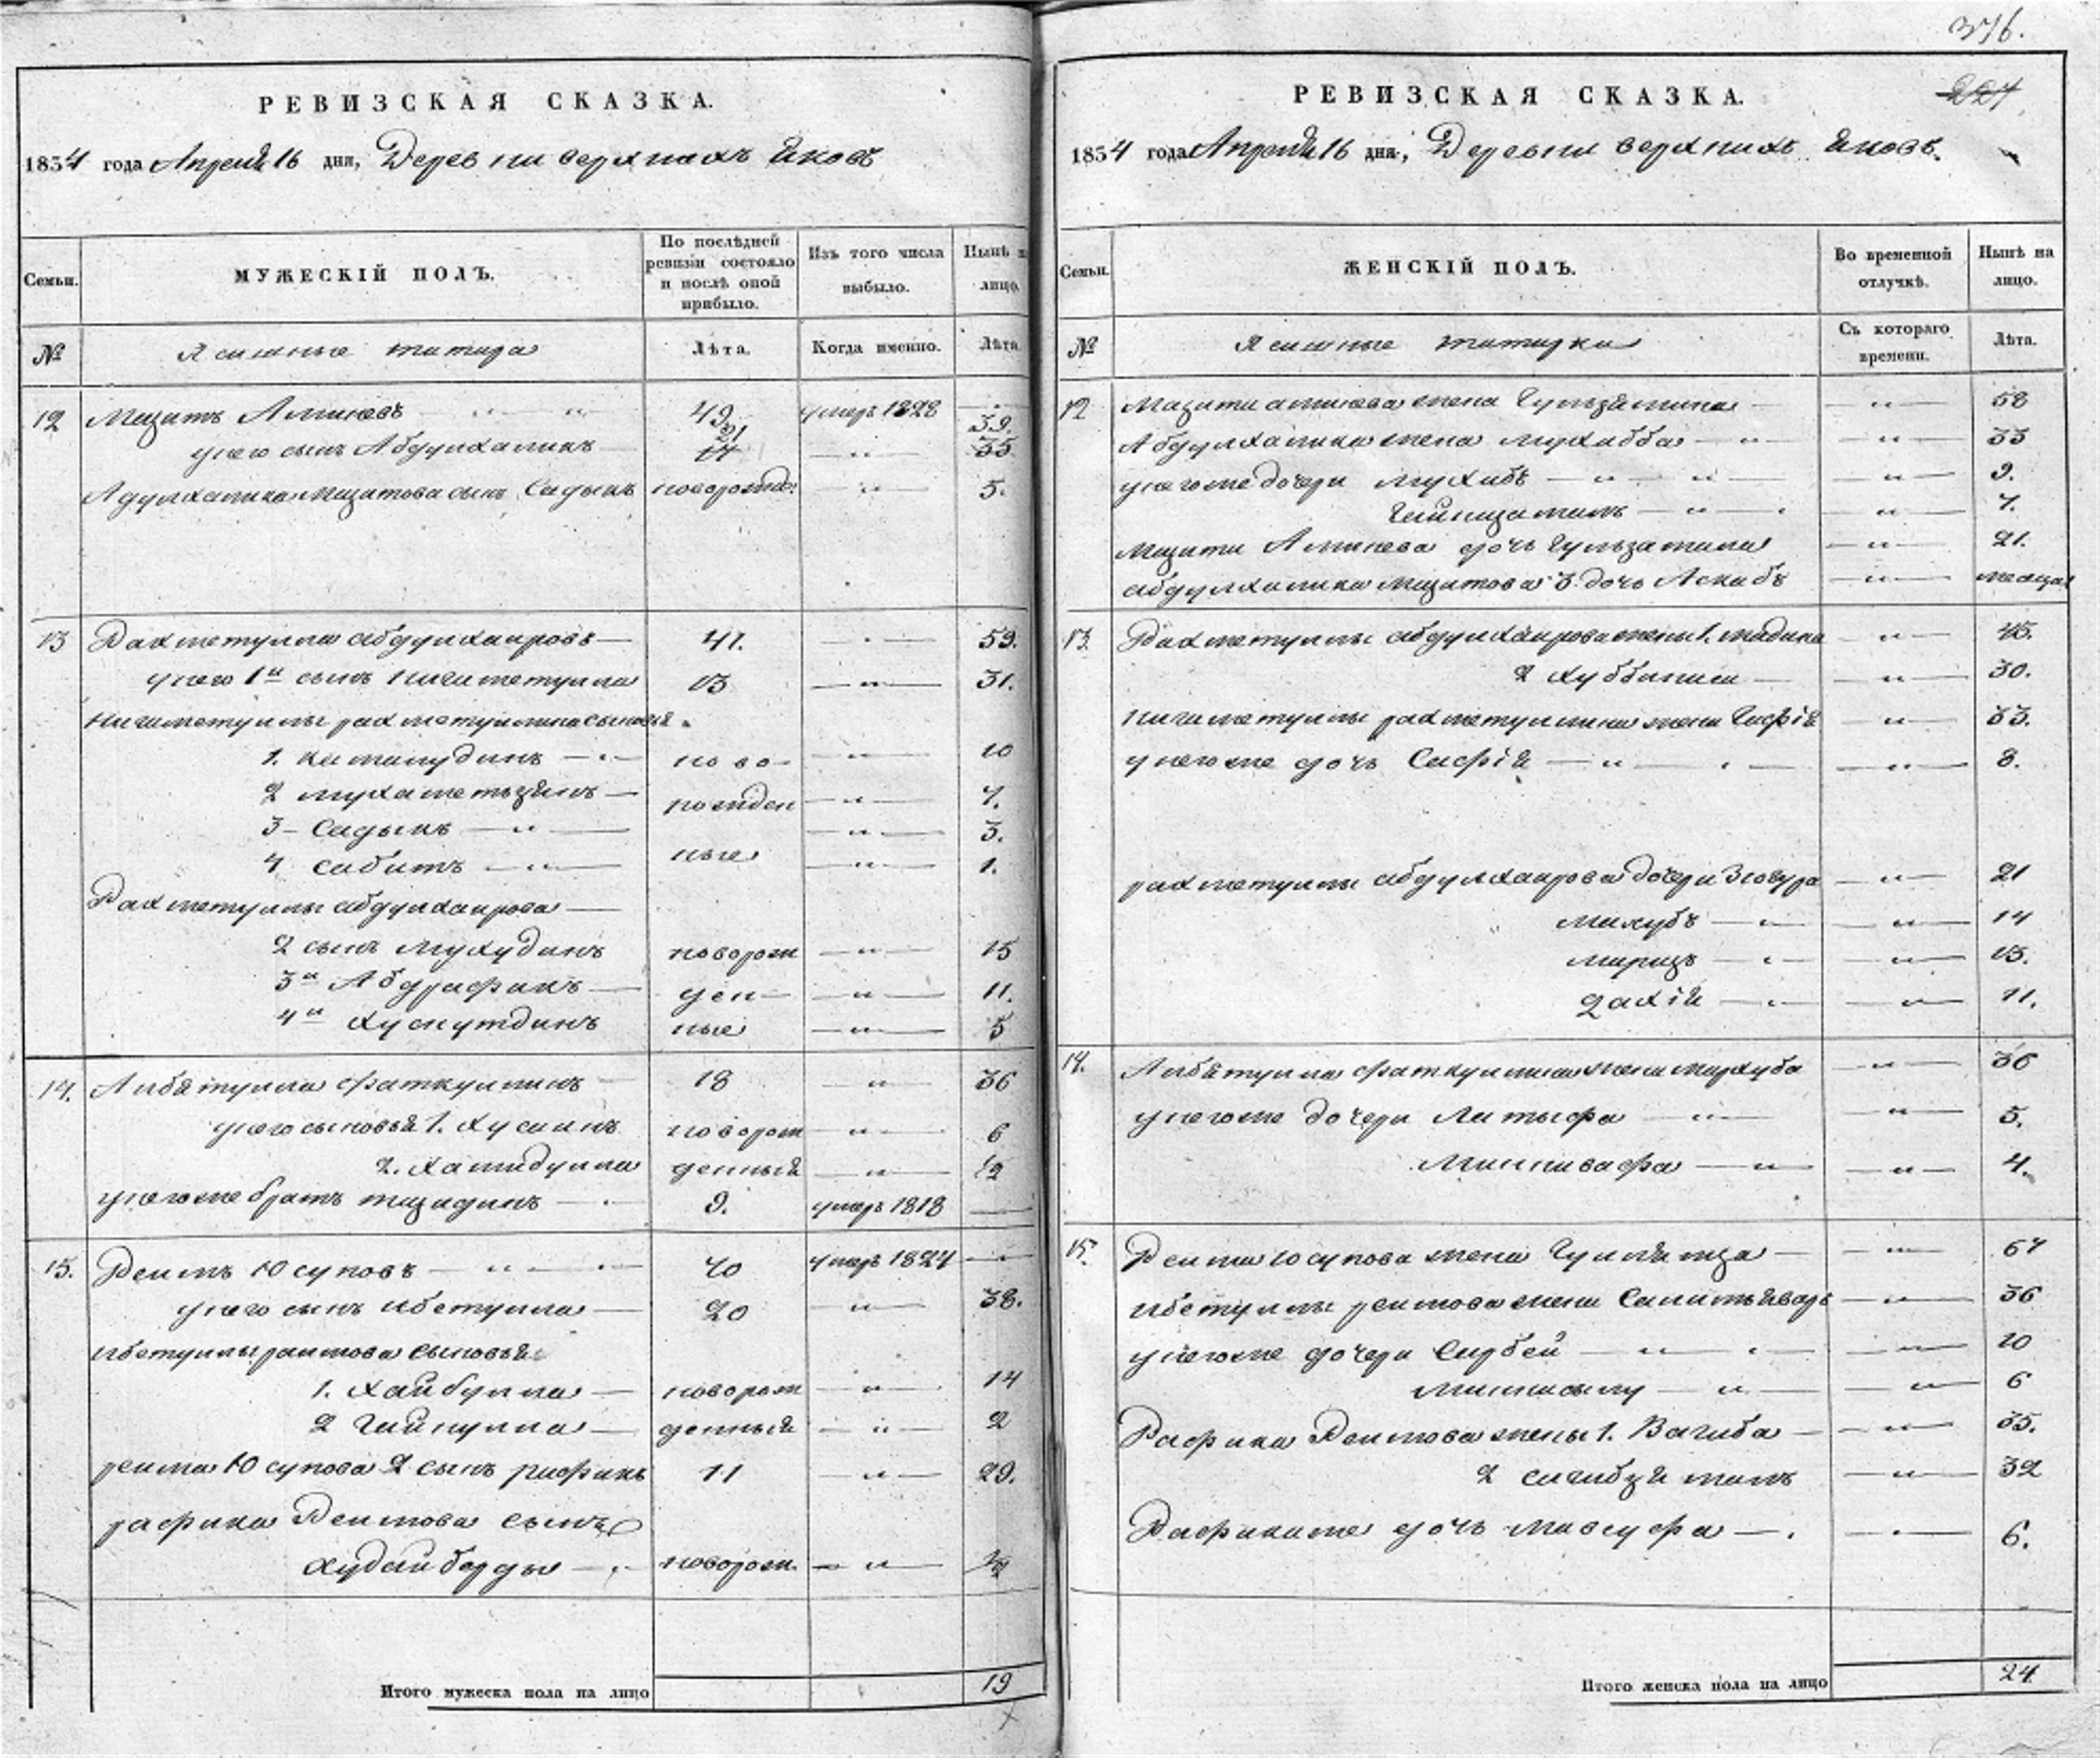 РЕВИЗСКАЯ СКАЗКА.
1834 года Апреля 16 дня, Деревни верхнихъ
Семьи.
МУЖЕСКІЙ ПОЛЪ.
По послѣдней ревизіи состояло и послѣ оной прибыло.
Изъ того числа выбыло.
Нынѣ на лицо.
№
Ясашные татара
Лѣта.
Когда именно.
Лѣта.
12 Мазитъ Аминевъ 49 умеръ 1828
39.
у него сынъ Абдулхаликъ 21 35
Адулхалика Мазитова сынъ Садыкъ новорожд: 5.
13 Рахметулла абдулхаировъ 41. 59.
у него 1й сынъ нигиметулла 13 31.
нигиметуллы рахметуллина сыновья
1. камалудинъ ново- 10
2 мухаметьзянъ рожден 7.
3 Садыкъ 3.
4 сабитъ ные 1.
Рахметуллы абдулхаирова
2 сынъ мухудинъ новорож 15
3й Абдрафикъ ден- 11.
4й хуснутдинъ ные 5
14. фаткуллинъ 18 36
у него сыновья 1. хусаинъ новорож 6
2. хамидулла денныя 1/2
у него же братъ тазидинъ 9. умеръ 1818
15. Реимъ Юсуповъ 40 умеръ 1824
у него сынъ ибетулла 20 38.
ибетуллы раимова сыновья
1. хайбулла новорож 14
2 гайнулла денныя 2
реима Юсупова 2 сынъ рафикъ 11 29.
рафика Реимова сынъ
худайберды новорож. 1/2
Итого мужеска пола на лицо 19
376.
227
РЕВИЗСКАЯ СКАЗКА.
1834 года Апреля 16 дня, Деревни верхнихъ
Семьи.
ЖЕНСКІЙ ПОЛЪ.
Во временной отлучкѣ.
Нынѣ на лицо.
№
Ясашные татарки
Съ котораго времени.
Лѣта.
12 Мазита аминева жена 58
Абдулхалика жена мухабба 33
у него же дочери мухибъ 9.
7.
Мазита Аминева дочь 21.
абдулхалика мазитова 3. дочь месяца
13. Рахметуллы абдулхаирова жены 1. мадина 45.
2 хуббиниса 30.
нигиметуллы рахметуллина жена 33.
у него же дочь Сафія 8.
рахметуллы абдулхаирова дочери Зюгура 21
14
13.
11.
14. фаткуллина жена 36
у него же дочери Латыфа 5.
Миннивафа 4.
15. Реима Юсупова жена 67
ибетуллы реимова жена 36
у него же дочери 10
6
Рафика Реимова жены 1. Вагиба 35.
2 32
Рафика же дочь 6.
Итого женска пола на лицо 24